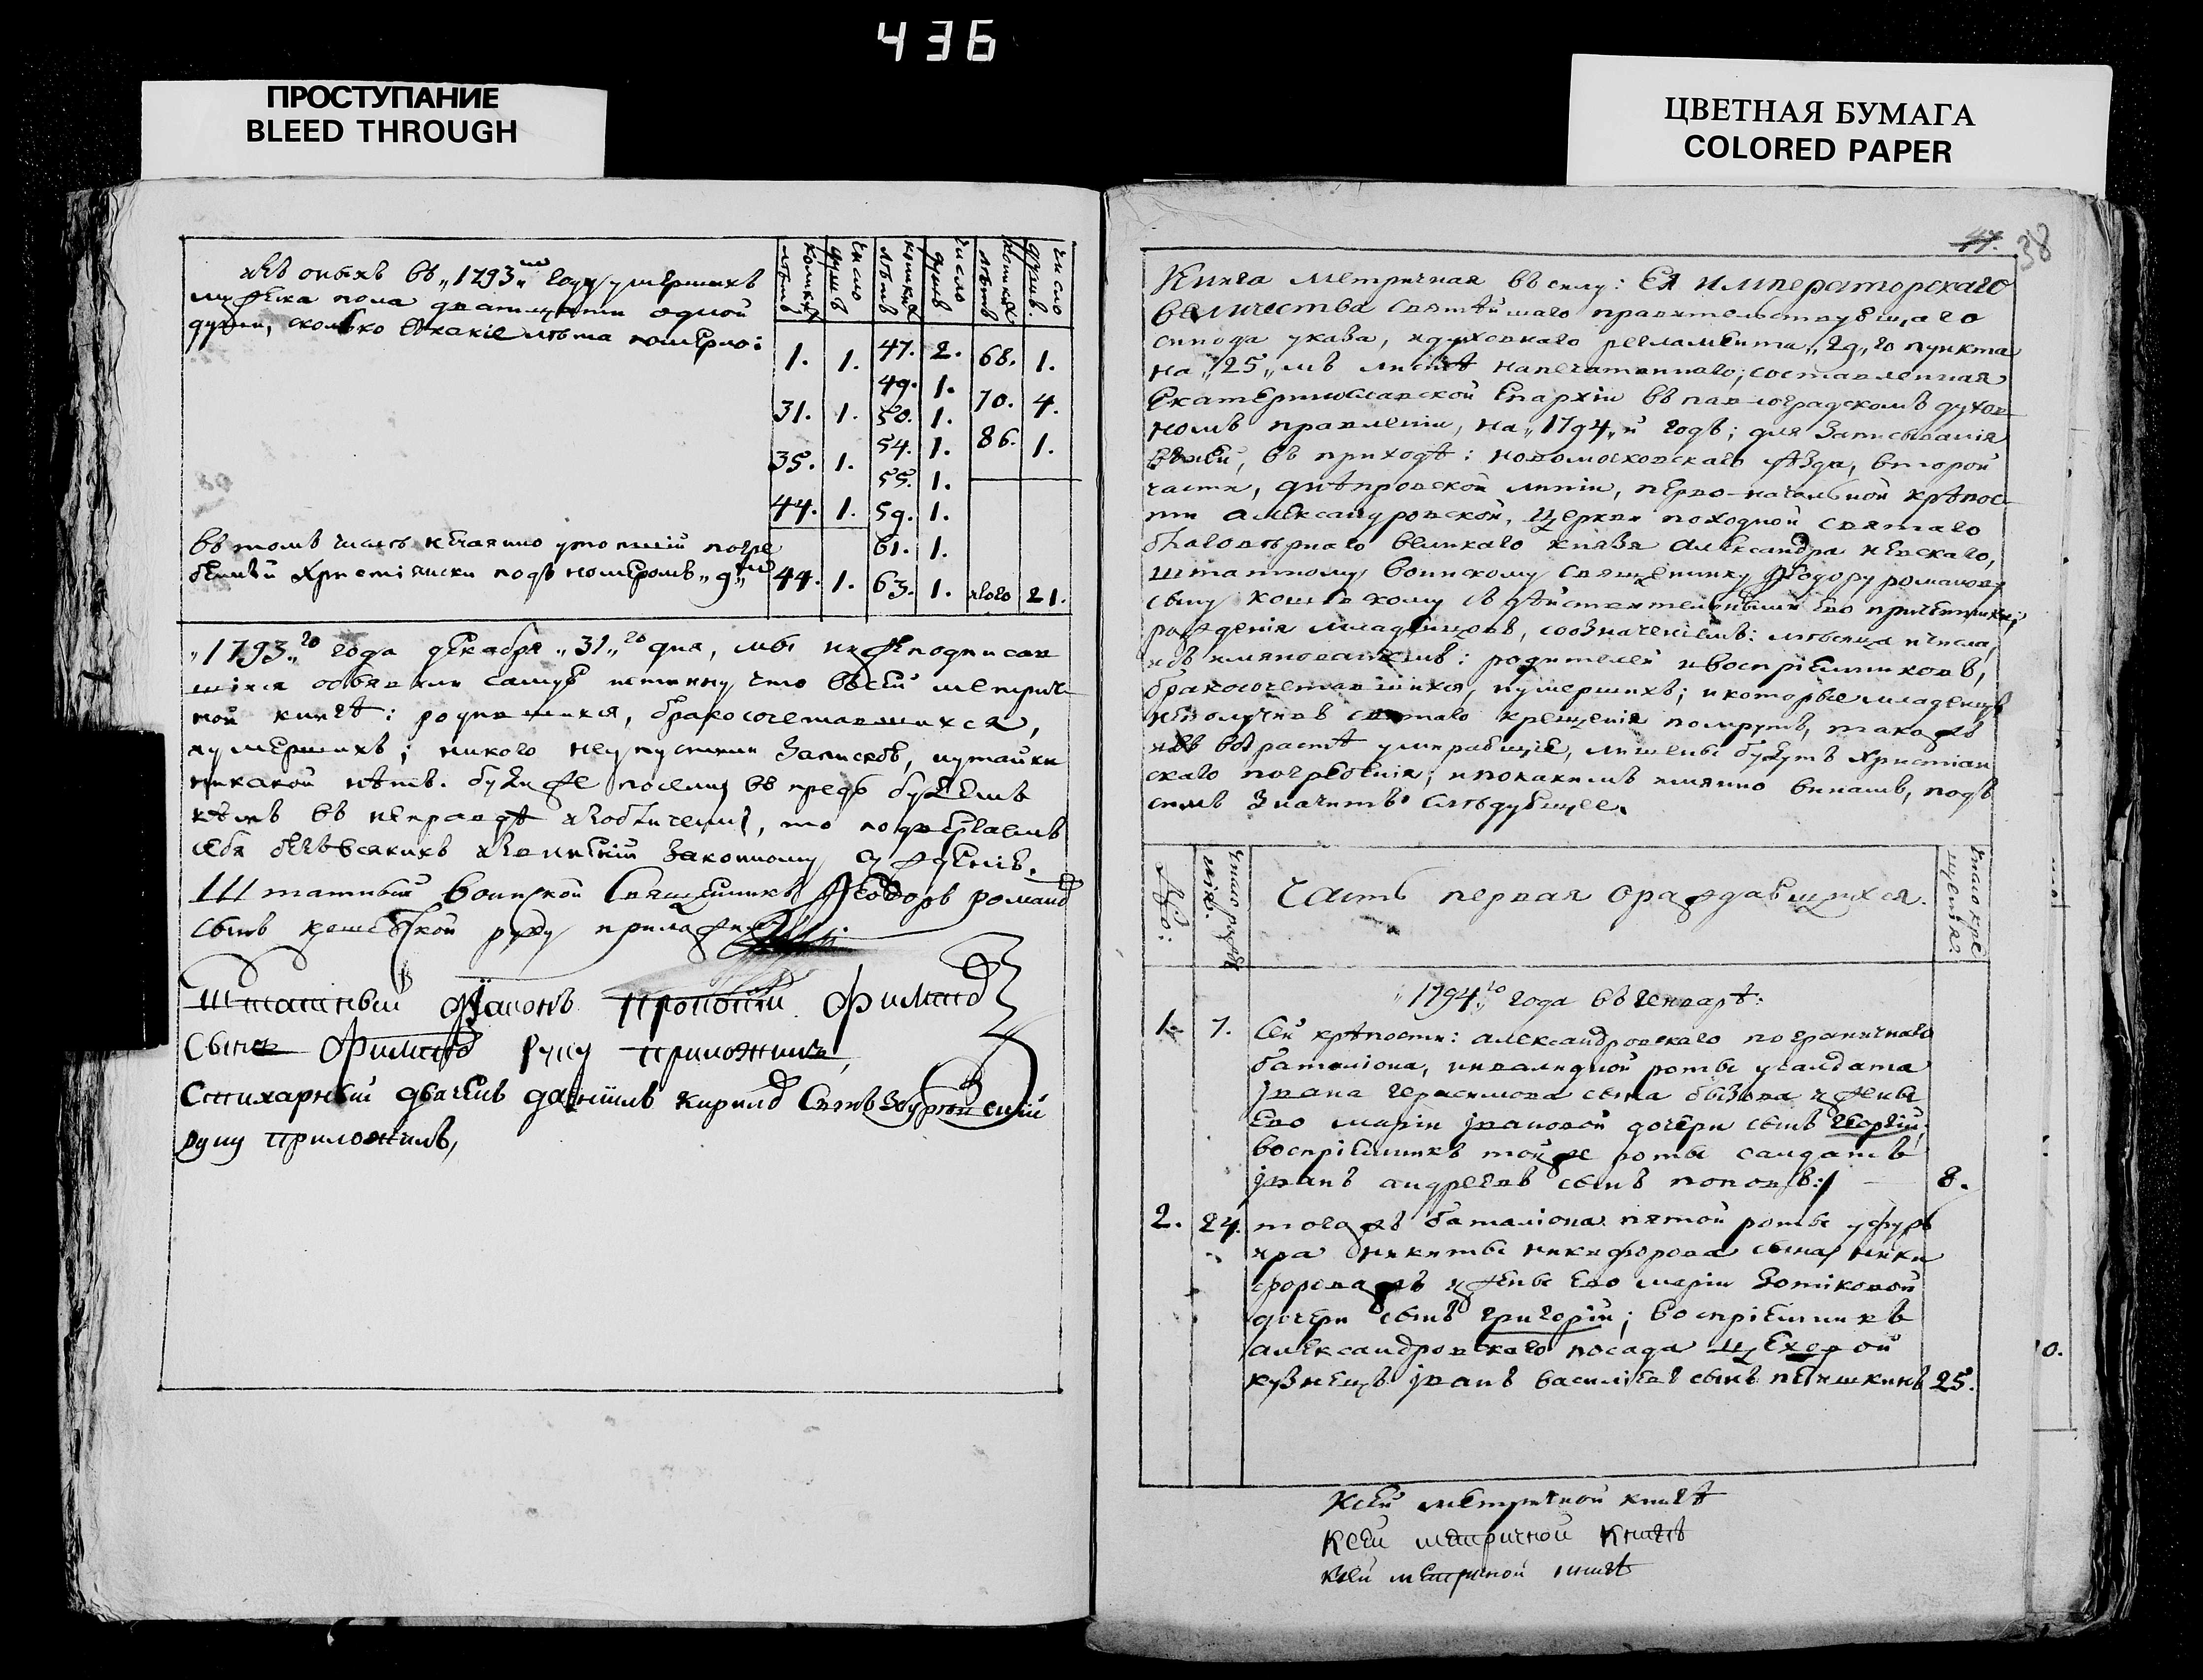 436
ПРОСТУПАНИЕ
BLEED THROUGH
ЦВЕТНАЯ БУМАГА
COLORED PAPER
изъ оныхъ въ „1793„мъ году умершихъ
мужеска пола дватцати одной
души, сколько въ какіе лѣта померло:
коихъ лѣтъ
число душъ
коихъ лѣтъ
число душъ
коихъ лѣтъ
число душъ.
1. 1. 47. 2. 68. 1.
49. 1.
31. 1. 50. 1. 70. 4.
54. 1. 86. 1.
35. 1. 55. 1.
44. 1. 59. 1.
61. 1.
44. 1. 63. 1. итого 21.
въ томъ числѣ нечаянно утопшій погре
бенный христіянски подъ номеромъ „9„мъ
„1793„го года декабря „31„го дня, мы нижеподписав
шіися объявили самую истинну что въ сей метрич
ной книгѣ: родившихся, бракосочетавшихся,
и умершихъ; никого не упустили записавъ, и утайки
никакой нѣтъ. буде же по сему въ предь будемъ
кѣмъ въ неправдѣ изобличены, то подвергаемъ
себя безъ всякихъ извиненій законному суждению.
Штатный воинской Священникъ Ѳеодоръ романовъ
сынъ кошевской руку приложилъ
Штатный Дїаконъ Прокопій Филиповъ
Сынъ Филиповъ Руку приложилъ,
Стихарный дьячекъ даніилъ кириловъ Сынъ
руку приложилъ,
47. 38
Книга метричная въ силу: Ея императорскаго
величества святѣйшаго правительствующаго
синода указа, и духовнаго регламента „29„го пункта
на „25„мъ листѣ напечатаннаго; составленная
Екатеринославской Епархіи въ павлоградскомъ духов
номъ правленіи, на „1794„й годъ; для записыванія
въ ней, въ приходѣ: новомосковскаго уѣзда, второй
части, днѣпровской линіи, перво-начальной крѣпос
ти александровской, церкви походной святаго
благовѣрнаго великаго князя александра невскаго,
штатному воинскому священнику Ѳеодору романову
сыну кошевскому съ дѣйствительными его причетники;
рожденія младенцовъ, со означеніемъ: мѣсяца и числа,
ихъ имянованіемъ: родителей и воспріемниковъ,
бракосочетавшихся, и умершихъ; и которые младенцы
не получивъ святаго крещенія помрутъ, такожъ
и въ возрастѣ умирающіе, лишены будутъ христіан
скаго погребенія; и по какимъ имянно винамъ, подъ
симъ значитъ слѣдующее.
число рожденія.
Часть первая о раждавшихся.
число крещенія.
„1794„го года въ генварѣ:
1. 7. Сей крѣпости: александровскаго пограничнаго
баталіона, инвалидной роты у салдата
івана герасимова сына бызова и жены
Его маріи івановой дочери сынъ георгій,
воспріемникъ той же роты салдатъ
іванъ андреевъ сынъ поповъ: 8.
2. 24. тогожъ баталіона пятой роты у фурь
ира никиты никифорова сына ники
фороважъ и жены Его маріи зотиковой
дочери сынъ григорій; воспріемникъ
александровскаго посада цеховой
кузнецъ іванъ василіевъ сынъ 25.
К сей метричной книгѣ
К сей метричной Книгѣ
К сей метричной книгѣ
0.